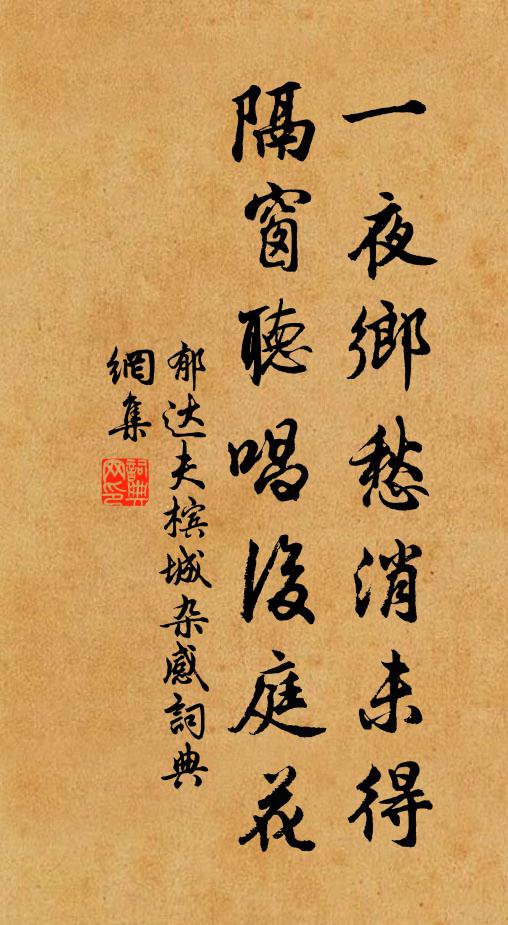 一夜鄉愁消未得
隔窗聽唱後庭花
郁达夫槟城杂感詞典
網集
詞典
网印